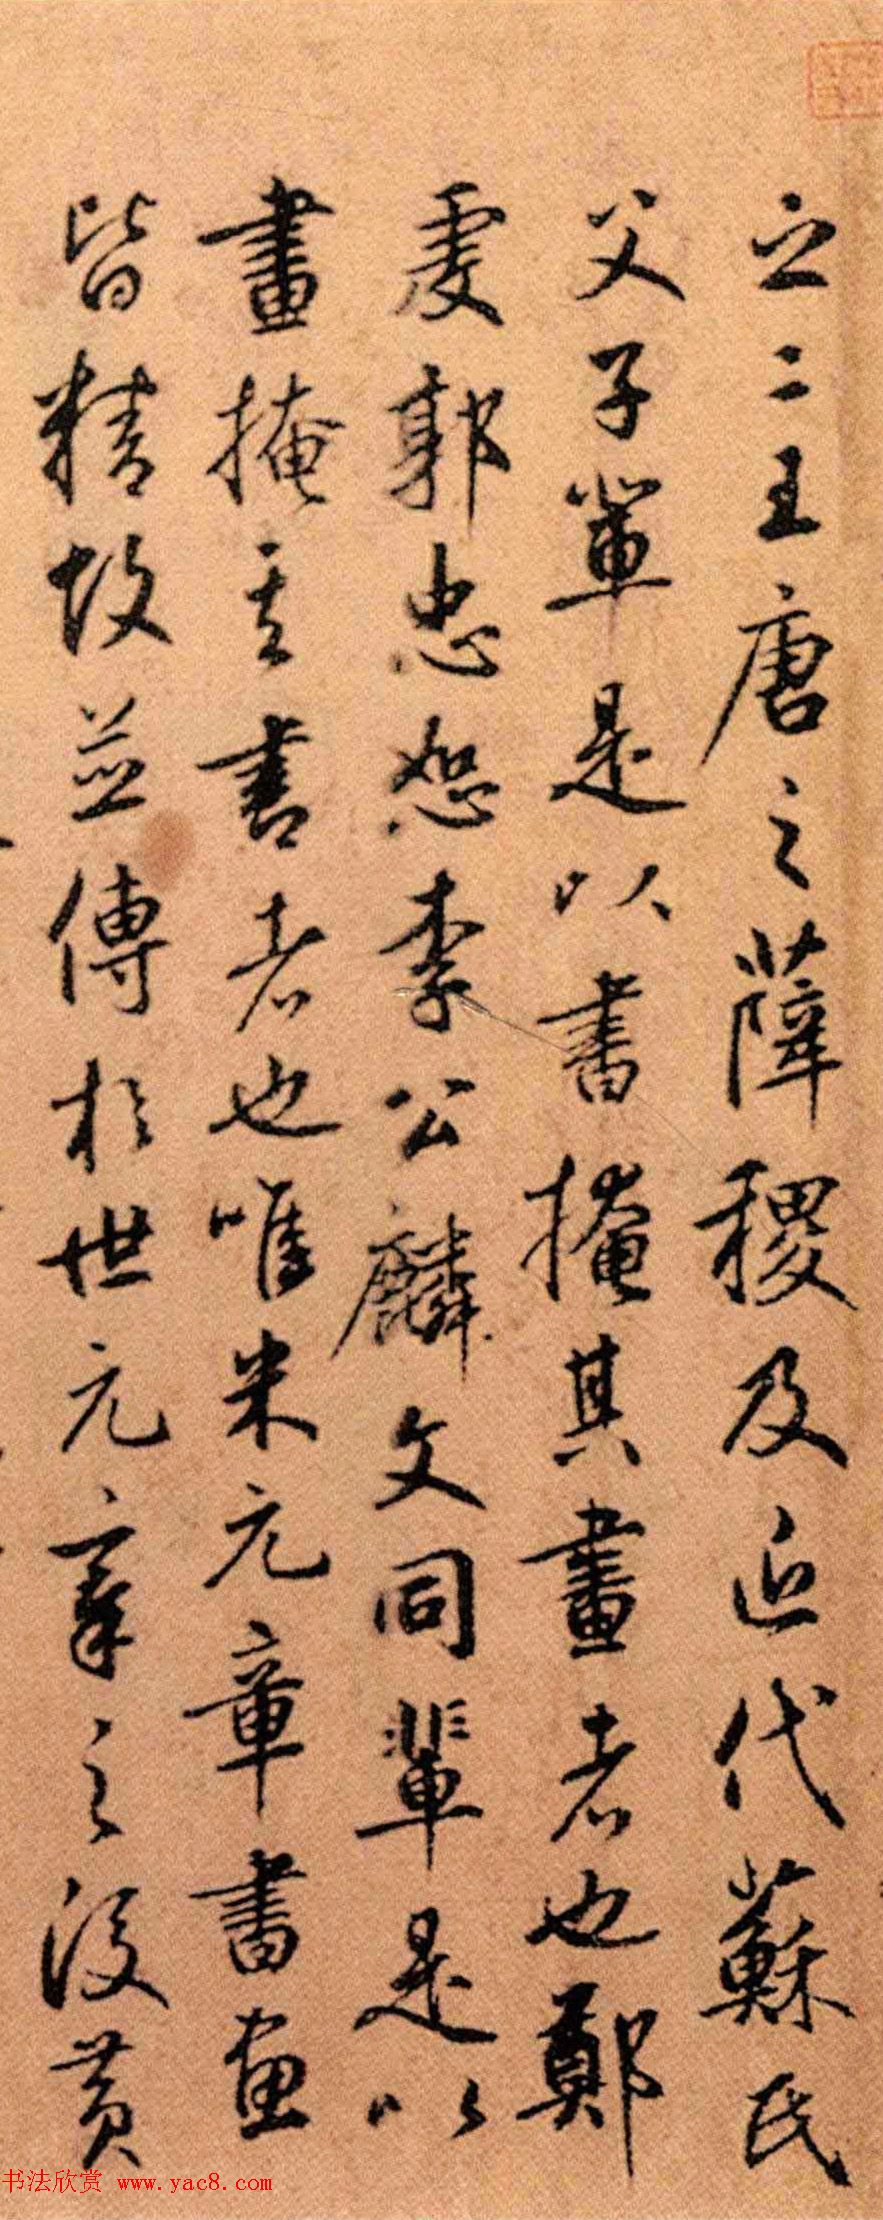 之二王唐之薛稷及近代蘇氏
父子輩是以書掩其畫者也鄭
虔郭忠恕李公麟文同輩是以
畫掩其書者也唯米元章書画
皆精故並傳於世元章之後黃
书法欣赏 www.yac8.com